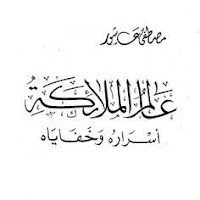 مصطفى عاشور
عَالَمُ المَلَائِكَةِ
أسْرَارُه وَخَفَايَاه